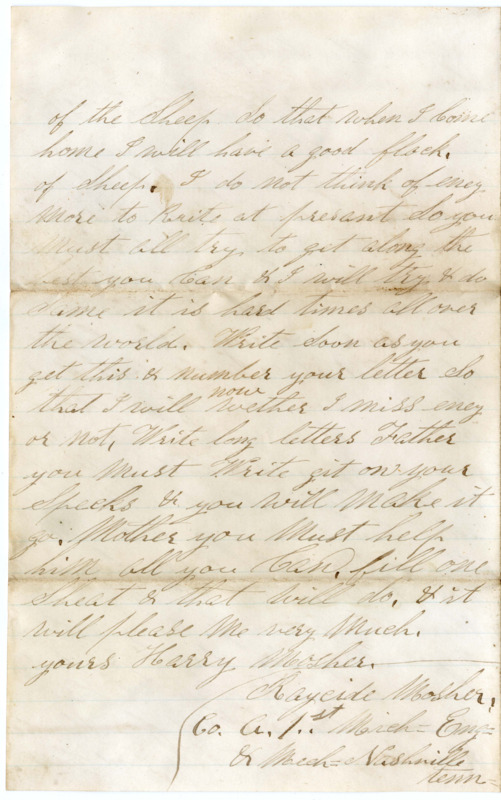 of the Sheep So that when I Come
home I will have a good flock.
of Sheep. I do not think of eney
More to Write at presant So you
Must all try to get along the
best you Can & I will try & do
Same it is hard times all over
the world. Write Soon as you
get this & number your letter So
that I will now wether I miss eney
or not, Write long letters Father
you Must Write git on your
Specks & you will Make it
go. Mother you Must help
him all you Can, fill one
Sheat & that will do. & it
will please Me very Much.
yours Harry Mosher.
Mosher,
Co. A. 1.st Mich= Eng=
& Mech= Nashville
tenn=